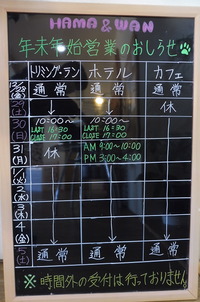 HAMA & WAN
年末年始営業のおしらせ
トリミング・ラン ホテル カフェ
12/28(金) 通常 通常 通常
29(土) 休
30(日) 10:00〜 LAST 16:30 CLOSE 17:00 10:00〜 LAST 16:30 CLOSE 17:00
31(月) 休 AM 9:00〜10:00 PM 3:00〜4:00
1/1(火)
2(水)
3(木)
4(金)
5(土) 通常 通常 通常
※時間外の受付は行っておりません